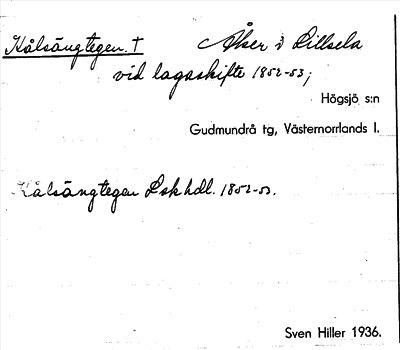 Kålsängtegen. † Åker i Lillsela
vid lagaskifte 1852-53;
Högsjö s:n
Gudmundrå tg, Västernorrlands l.
Kålsängtegen Lskhdl. 1852-53.
Sven Hiller 1936.